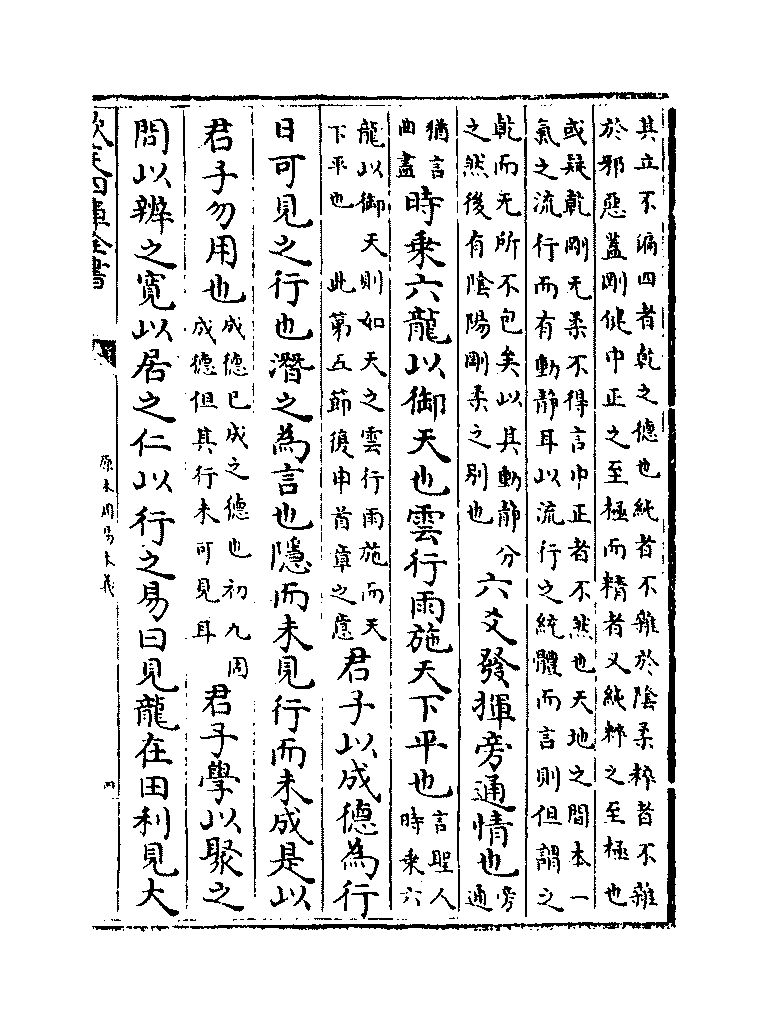 其立不偏四者乾之德也純者不雜於陰柔粹者不雜
於邪惡蓋剛健中正之至極而精者又純粹之至極也
或疑乾剛无柔不得言中正者不然也天地之間本一
氣之流行而有動靜耳以流行之統體而言則但謂之
乾而无所不包矣以其動靜分
之然後有陰陽剛柔之別也
六爻發揮旁通情也
旁通
猶言
曲盡
時乗六龍以御天也雲行雨施天下平也
言聖人
時乗六
龍以御天則如天之雲行雨施而天
下平也 此第五節復申首章之意
君子以成德為行
日可見之行也潛之為言也隱而未見行而未成是以
君子勿用也
成德已成之德也初九固
成德但其行未可見耳
君子學以聚之
問以辨之寛以居之仁以行之易曰見龍在田利見大
欽定四庫全書
原本周易本義